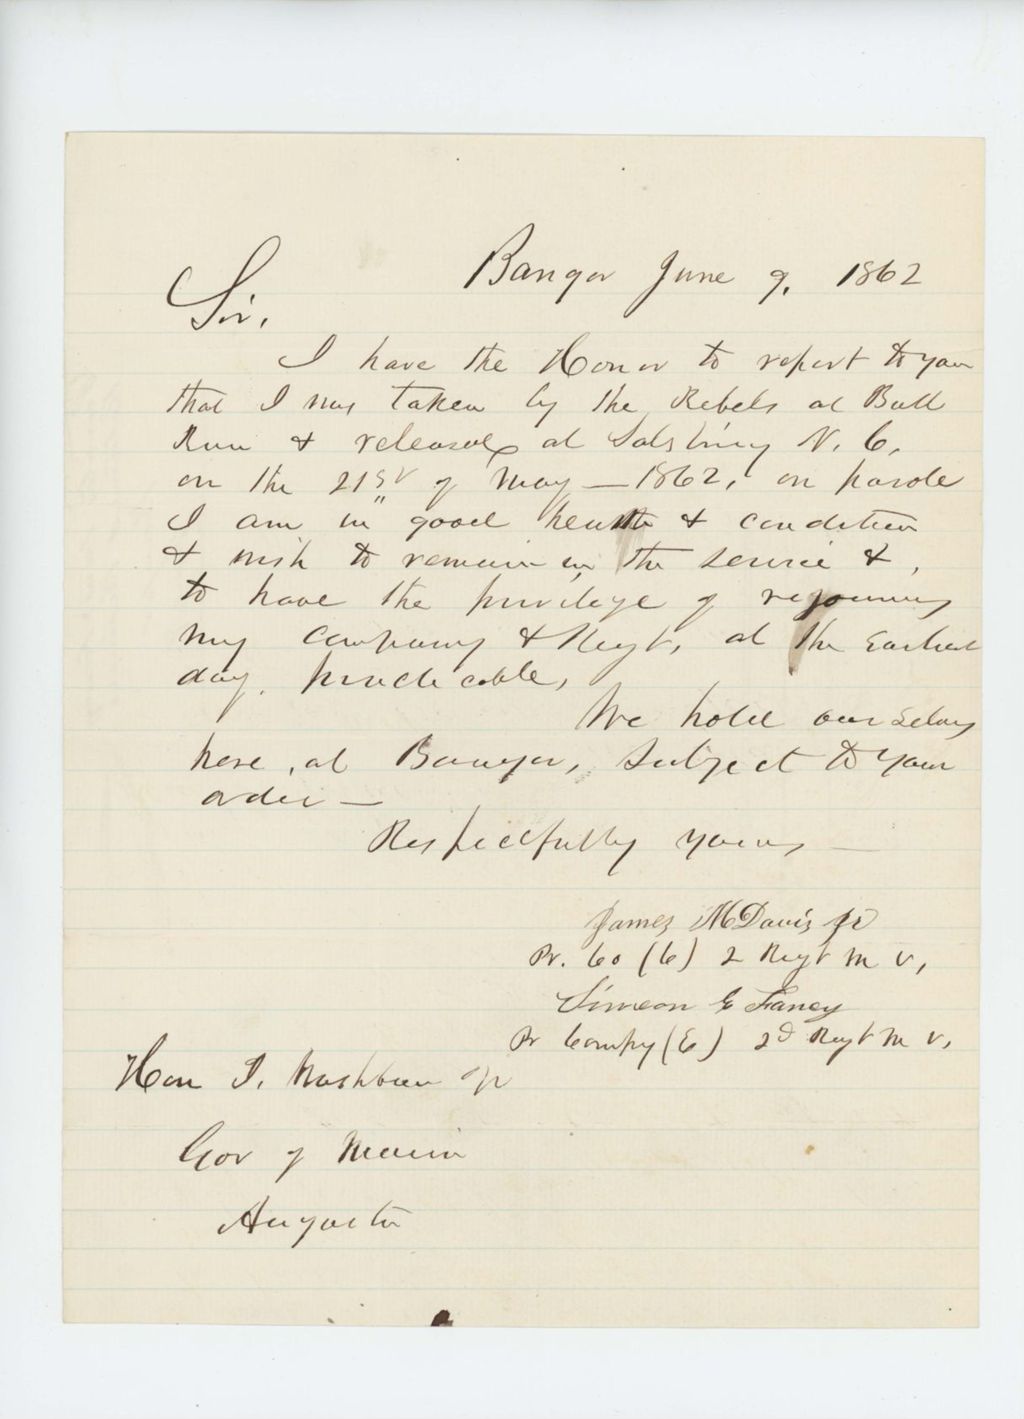 Bangor June 9, 1862
Sir,
I have the Honor to report to you
that I was taken by the Rebels at Bull
Run & released at Salsbury N. C,
on the 21st of May – 1862, on parole
I am in good health & condition
& wish to remain in the service &,
to have the privilege of rejoining
my Company & Regt, at the Earliest
day, practicable,
We hold our selves
here, at Bangor, Subject to your
order –
Respectfully yours –
James M Davis Jr
Pr. Co (C) 2 Regt M V,
Simeon E
Pr Compy (E) 2d Regt M V,
Hon I. Washburn Jr
Gov of Maine
Augusta